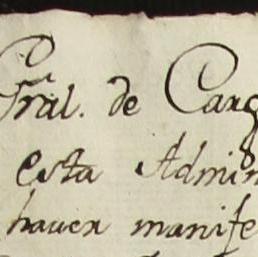 Gral. de Carg
esta Admin
haver manife